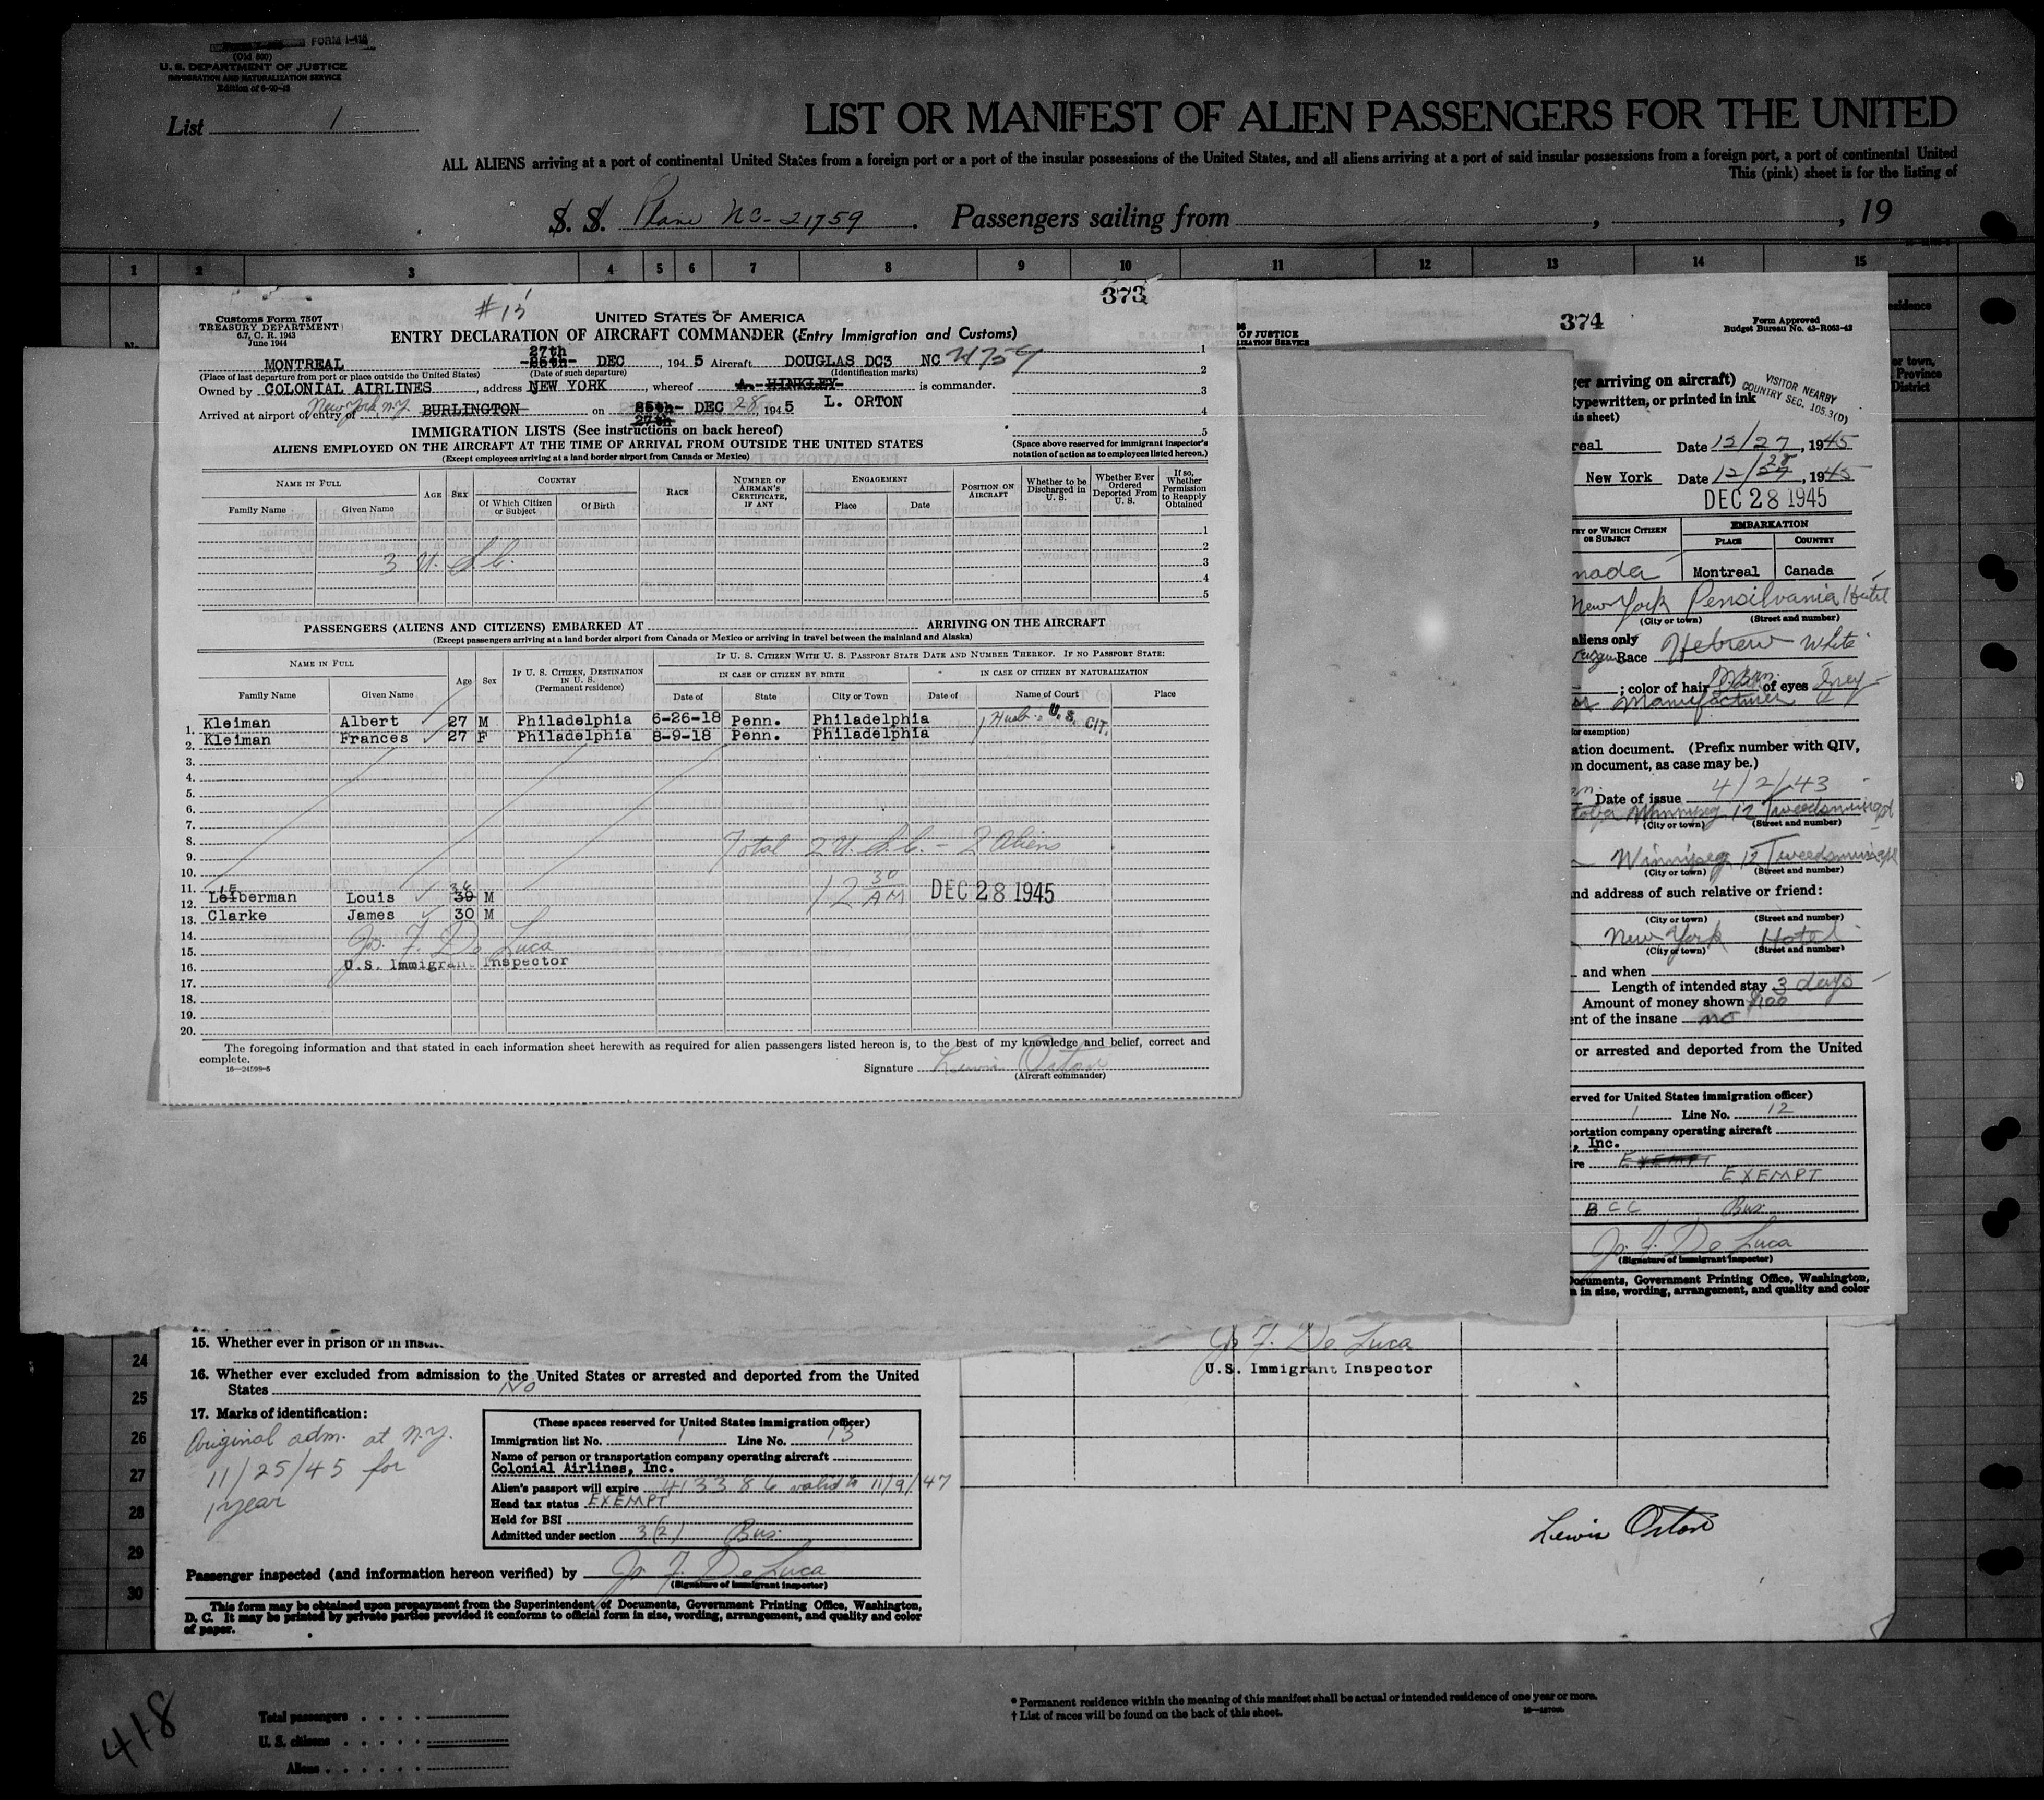 FORM I-418
(Old 500)
U. S. DEPARTMENT OF JUSTICE
IMMIGRATION AND NATURALIZATION SERVICE
Edition of 6-20-42
List 1
LIST OR MANIFEST OF ALIEN PASSENGERS FOR THE UNITED
ALL ALIENS arriving at a port of continental United States from a foreign port or a port of the insular possessions of the United States, and all aliens arriving at a port of said insular possessions from a foreign port, a port of continental United
This (pink) sheet is for the listing of
S. S. Plane NC-21759 . Passengers sailing from , , 19
1 2 3 4 5 6 7 8 9 10 11 12 13 14 15
#15
373
Customs Form 7507
TREASURY DEPARTMENT
6.7, C. R. 1943
June 1944
UNITED STATES OF AMERICA
ENTRY DECLARATION OF AIRCRAFT COMMANDER (Entry Immigration and Customs)
27th
MONTREAL 26th DEC , 194 5 Aircraft DOUGLAS DC3 NC 21759
(Place of last departure from port or place outside the United States) (Date of such departure) (Identification marks)
Owned by COLONIAL AIRLINES , address NEW YORK , whereof A. HINKLEY is commander.
L. ORTON
Arrived at airport of entry of New York N.Y. BURLINGTON on 26th DEC 28, 194 5
27th
1
2
3
4
5
IMMIGRATION LISTS (See instructions on back hereof)
ALIENS EMPLOYED ON THE AIRCRAFT AT THE TIME OF ARRIVAL FROM OUTSIDE THE UNITED STATES
(Except employees arriving at a land border airport from Canada or Mexico)
(Space above reserved for immigrant inspector's
notation of action as to employees listed hereon.)
NAME IN FULL
Family Name Given Name
AGE SEX
COUNTRY
Of Which Citizen or Subject Of Birth
RACE
NUMBER OF AIRMAN'S CERTIFICATE, IF ANY
ENGAGEMENT
Place Date
POSITION ON AIRCRAFT
Whether to be Discharged in U. S.
Whether Ever Ordered Deported From U. S.
If so, Whether Permission to Reapply Obtained
1
2
3 U. S. C. 3
4
5
PASSENGERS (ALIENS AND CITIZENS) EMBARKED AT ARRIVING ON THE AIRCRAFT
(Except passengers arriving at a land border airport from Canada or Mexico or arriving in travel between the mainland and Alaska)
NAME IN FULL
Family Name Given Name
Age Sex
IF U. S. CITIZEN, DESTINATION IN U. S. (Permanent residence)
IF U. S. CITIZEN WITH U. S. PASSPORT STATE DATE AND NUMBER THEREOF. IF NO PASSPORT STATE:
IN CASE OF CITIZEN BY BIRTH IN CASE OF CITIZEN BY NATURALIZATION
Date of State City or Town Date of Name of Court Place
1. Kleiman Albert 27 M Philadelphia 6-26-18 Penn. Philadelphia Husb. U.S. CIT.
2. Kleiman Frances 27 F Philadelphia 8-9-18 Penn. Philadelphia
3.
4.
5.
6.
7.
8. Total 2 U. S. C. - 2 Aliens
9.
10.
11. 12 30 AM DEC 28 1945
12. Leiberman Louis 39 36 M
13. Clarke James 30 M
14.
15. Jos. F. De Luca
16. U.S. Immigrant Inspector
17.
18.
19.
20.
The foregoing information and that stated in each information sheet herewith as required for alien passengers listed hereon is, to the best of my knowledge and belief, correct and
complete.
16—24598-5
Signature Lewis Orton
(Aircraft commander)
OF JUSTICE
374
Form Approved
Budget Bureau No. 43-R063-42
ger arriving on aircraft)
typewritten, or printed in ink
is sheet)
VISITOR NEARBY
COUNTRY SEC. 105.3(D)
real Date 12/27, 1945
New York Date 12/27 28, 1945
DEC 28 1945
RY OF WHICH CITIZEN OR SUBJECT
EMBARKATION
PLACE COUNTRY
nada Montreal Canada
New York Pensilvania Hotel
(City or town) (Street and number)
aliens only
Race Hebrew White
; color of hair of eyes Grey
Manufacturer
for exemption)
ation document. (Prefix number with QIV,
n document, as case may be.)
Date of issue 4/2/43
Winnipeg 12 Tweedsmuir
(City or town) (Street and number)
Winnipeg 12 Tweedsmuir
(City or town) (Street and number)
nd address of such relative or friend:
(City or town) (Street and number)
New York Hotel
(City or town) (Street and number)
and when
Length of intended stay 3 days
Amount of money shown $100
ent of the insane no
or arrested and deported from the United
erved for United States immigration officer)
1 Line No. 12
portation company operating aircraft
, Inc.
ire EXEMPT
EXEMPT
BCC Bus.
Jos. F. De Luca
(Signature of immigrant inspector)
Documents, Government Printing Office, Washington,
n in size, wording, arrangement, and quality and color
15. Whether ever in prison or in
16. Whether ever excluded from admission to the United States or arrested and deported from the United
States No
17. Marks of identification:
Original adm. at N.Y.
11/25/45 for
1 year
(These spaces reserved for United States immigration officer)
Immigration list No. 1 Line No. 13
Name of person or transportation company operating aircraft
Colonial Airlines, Inc.
Alien's passport will expire 413386 valid to 11/9/47
Head tax status EXEMPT
Held for BSI
Admitted under section 3(2) Bus.
Passenger inspected (and information hereon verified) by Jos. F. De Luca
(Signature of immigrant inspector)
This form may be obtained upon prepayment from the Superintendent of Documents, Government Printing Office, Washington,
D. C. It may be printed by private parties provided it conforms to official form in size, wording, arrangement, and quality and color
of paper.
Jos. F. De Luca
U.S. Immigrant Inspector
Lewis Orton
24
25
26
27
28
29
30
418
Total passengers
U. S. citizens
Aliens
* Permanent residence within the meaning of this manifest shall be actual or intended residence of one year or more.
† List of races will be found on the back of this sheet.